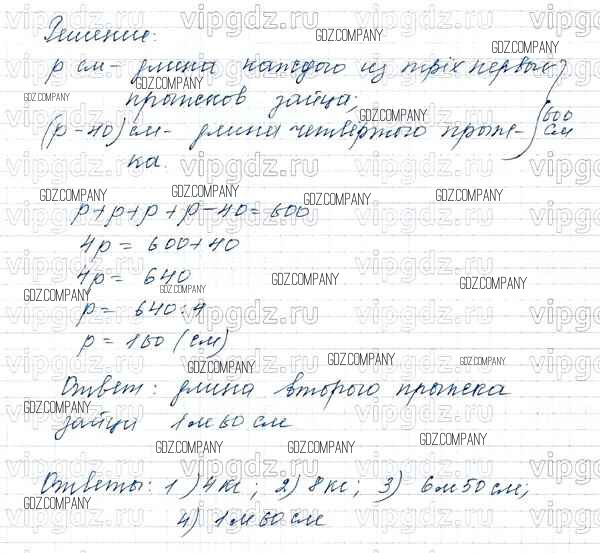 Решение:
p см - длина каждого из трёх первых
прыжков зайца;
(p-40) см - длина четвертого прыж-
ка.
600
см
p+p+p+p-40=600
4p = 600+40
4p = 640
p = 640:4
p = 160 (см)
Ответ: длина второго прыжка
зайца 1м 60 см
Ответы: 1) 4кг; 2) 8кг; 3) 6м 50 см;
4) 1м 60 см
GDZ.COMPANY
vipgdz.ru